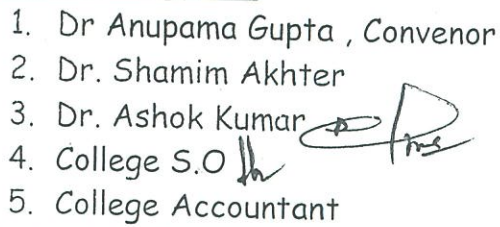 1. Dr Anupama Gupta , Convenor
2. Dr. Shamim Akhter
3. Dr. Ashok Kumar
4. College S.O
5. College Accountant